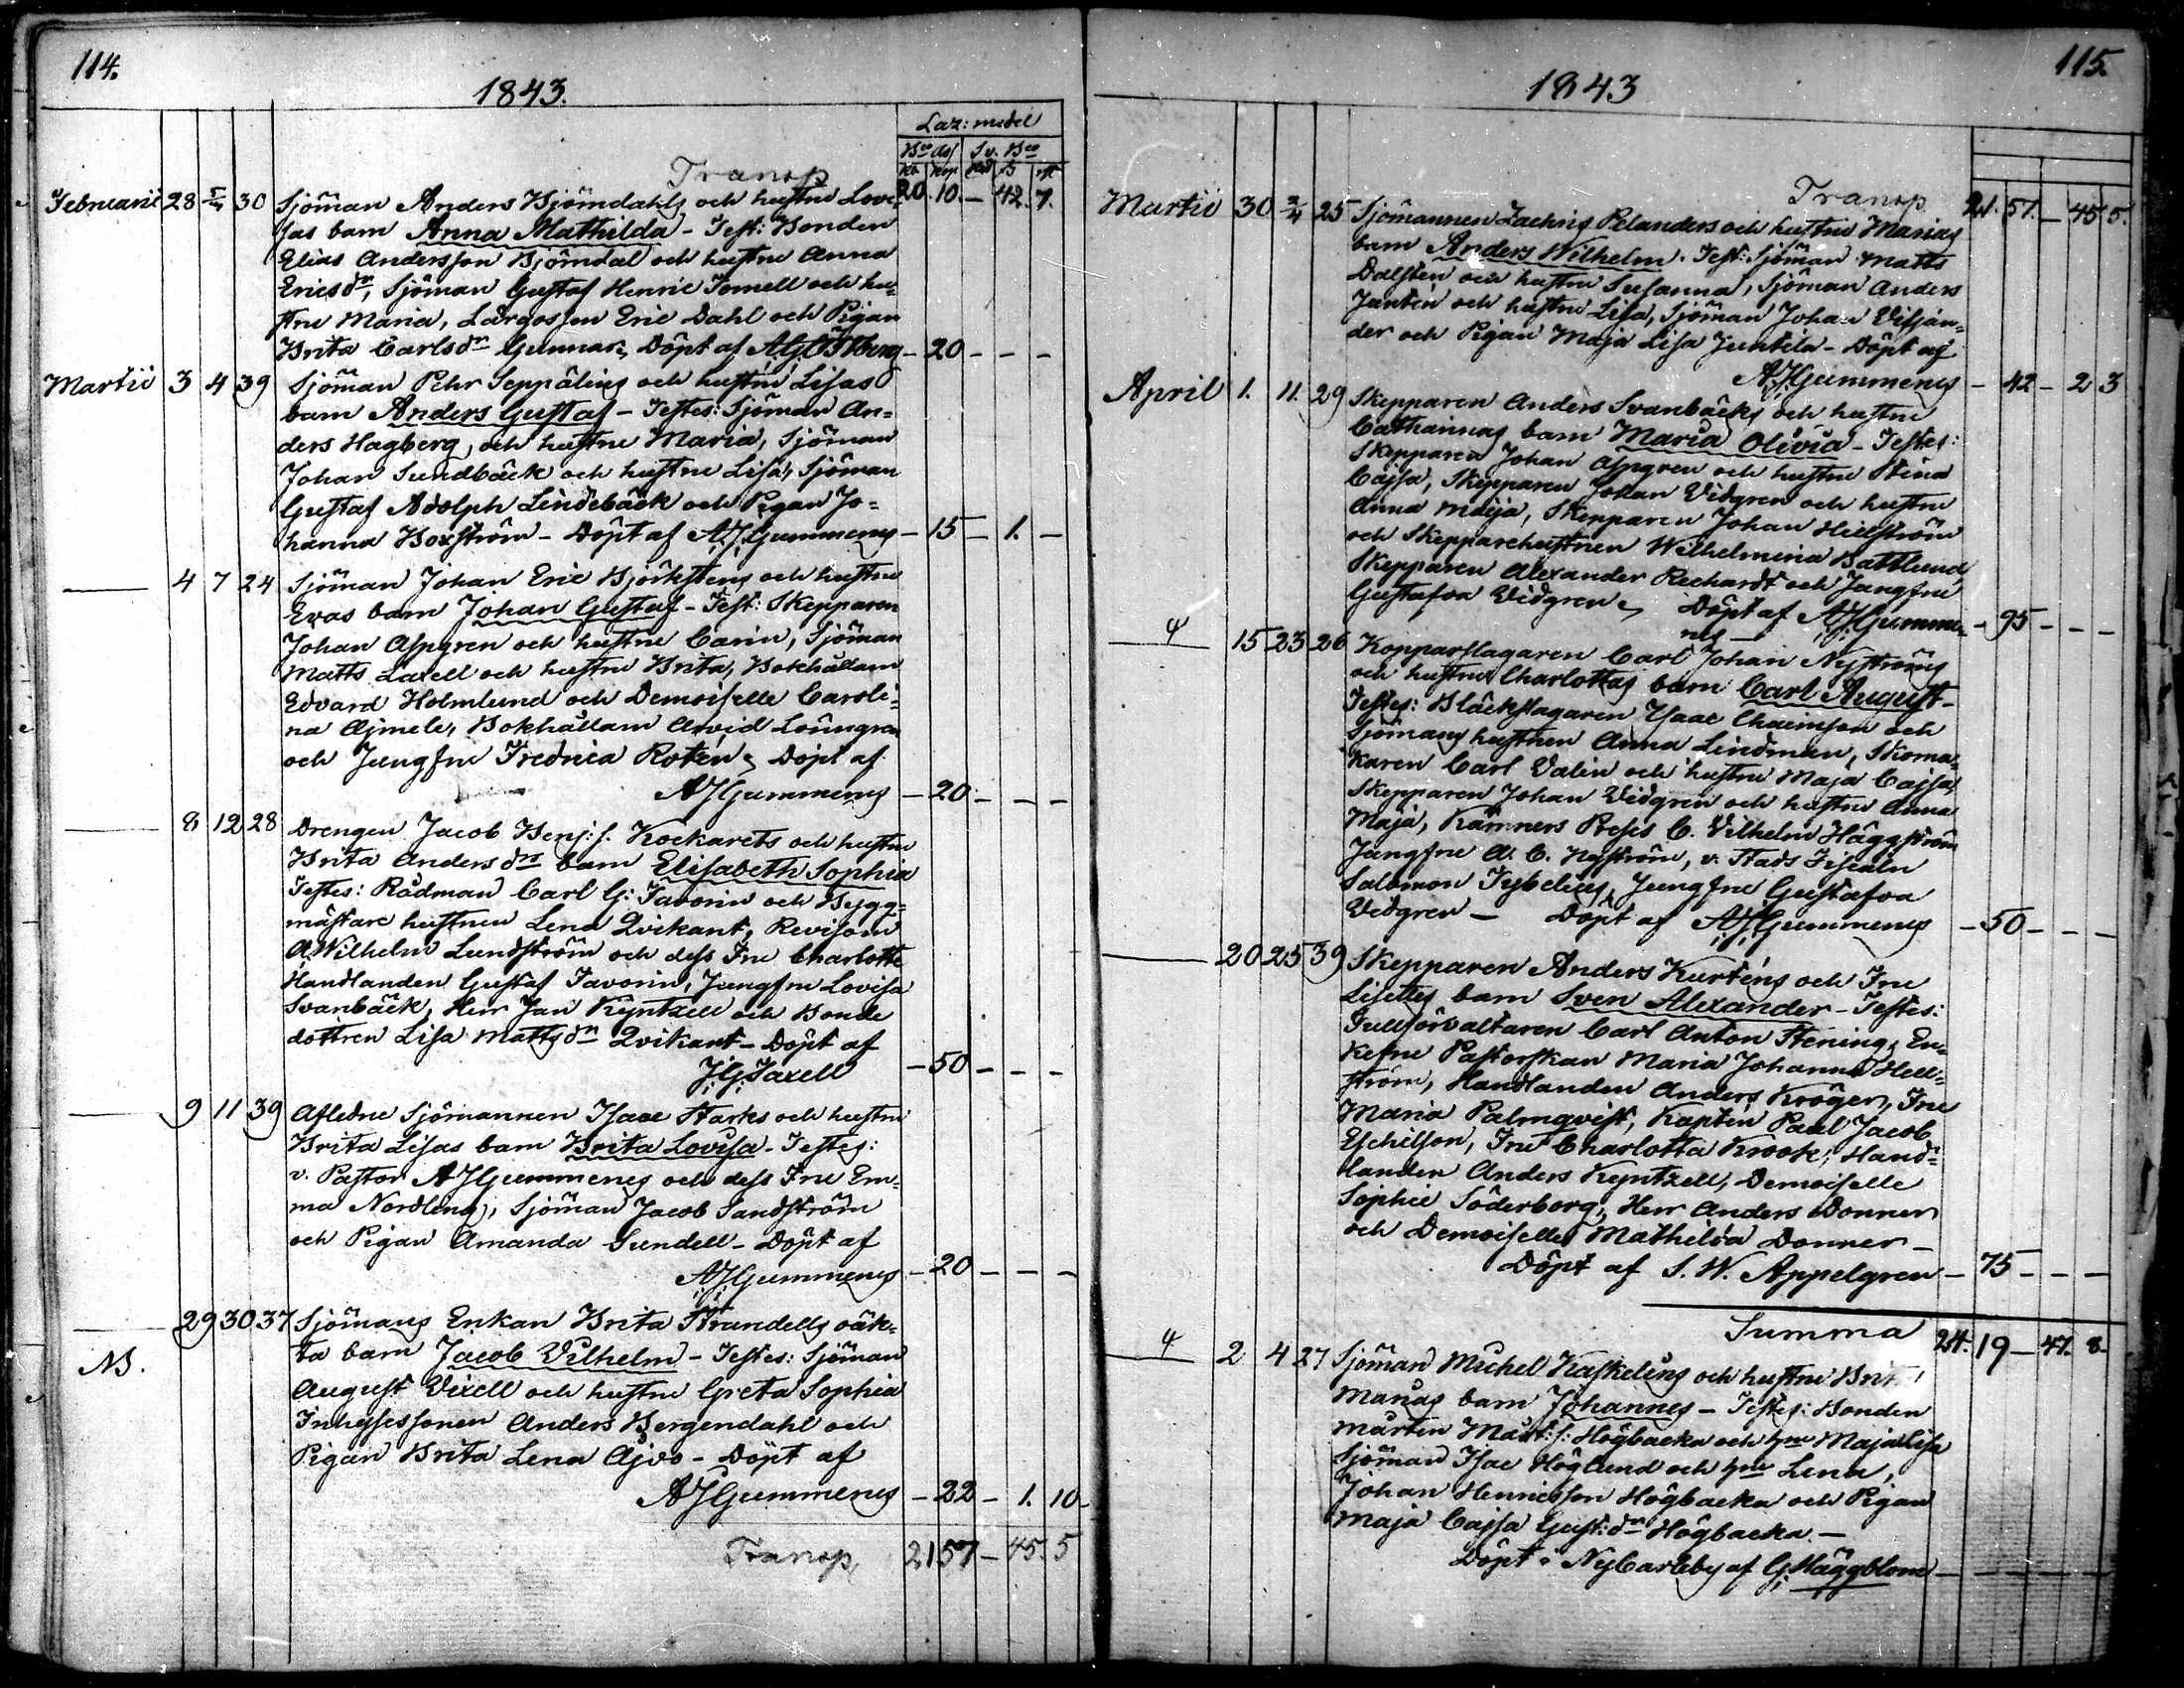 114.
1843.
Laz: medel
Bco Ass Sv. Bco
Transp 20. 10. — 42. 7.
Februarii 28 5/4 30 Sjöman Anders Björndahls och hustru Lovi-
sas barn Anna Mathilda - Test: Bonden
Elias Andersson Björndal och hustru Anna
Ericsdr, Sjöman Gustaf Henric Fornell och hu-
stru Maria, Lärgossen Eric Dahl och Pigan
Brita Carlsdr Gunnar, Döpt af — 20 — — —
Martii 3 4 39 Sjöman Pehr Seppälins och hustru Lisas
barn Anders Gustaf - Testes: Sjöman An-
ders Hagberg, och hustru Maria, Sjöman
Johan Sundbäck och hustru Lisa, Sjöman
Gustaf Adolph Lindebäck och Pigan Jo-
hanna Boxström - Döpt af AJGummerus — 15 — 1. —
— 4 7 24 Sjöman Johan Eric Björkstens och hustru
Evas barn Johan Gustaf - Test: Skepparen
Johan Aspgren och hustru Carin, Sjöman
Matts Laxell och hustru Brita, Bokhållarn
Edvard Holmlund och Demoiselle Caroli-
na Ajmele, Bokhållarn Arvid Lönngren
och Jungfru Fredrica Rotén, Döpt af
AJGummerus — 20 — — —
— 8 12 28 Drengen Jacob Benj: s. Kockarets och hustru
Brita Andersdr barn Elisabeth Sophia
Testes: Rådman Carl G: Favorin och Bygg-
mästare hustrun Lena Qvikant, Revisorn
A. Wilhelm Lundström och dess Fru Charlotte
Handlanden Gustaf Favorin, Jungfru Lovisa
Svanbäck, Herr Jan Kyntzell och Bonde
dottren Lisa Mattsdr Qvikant - Döpt af
J.G. Taxell — 50 — — —
— 9 11 39 Afledne Sjömannen Isaac Starks och hustru
Brita Lisas barn Brita Lovisa - Testes:
v. Pastor AJGummerus och dess Fru Em-
ma Nordling, Sjöman Jacob Sandström
och Pigan Amanda Sundell - Döpt af
AJGummerus — 20 — — —
— 29 30 37 Sjömans Enkan Brita Strandells oäk-
NB. ta barn Jacob Vilhelm - Testes: Sjöman
August Vixell och hustru Greta Sophia
Inhysessonen Anders Bergendahl och
Pigan Brita Lena Ajvo - Döpt af
AJGummerus — 22 — 1. 10
Transp 21 57 — 45. 5
115.
1843
Transp 21. 57. — 45. 5.
Martii 30 2/4 25 Sjömannen Zachris Pelanders och hustru Marias
barn Anders Wilhelm. Test: Sjöman Matts
Dalsten och hustru Susanna, Sjöman Anders
Juntén och hustru Lisa, Sjöman Johan Visjan-
der och Pigan Maja Lisa Juntela - Döpt af
AJGummerus — 42 — 2 3
April 1. 11. 29 Skepparen Anders Svanbäcks och hustru
Catharinas barn Maria Olivia - Testes:
Skepparen Johan Aspgren och hustru Stina
Cajsa, Skepparen Johan Vidgren och hustru
Anna Maija, Skepparen Johan Hellström
och Skepparehustrun Wilhelmina Battlund
Skepparen Alexander Rechardt och Jungfru
Gustafva Vidgren, Döpt af AJGumme-
rus — 95 — — —
— 15 23 26 Kopparslagaren Carl Johan Nyströms
och hustru Charlottas barn Carl August -
Testes: Bläckslagaren Isaac Charinson och
Sjömans hustrun Anna Lindman, Skoma-
karen Carl Valin och hustru Maja Cajsa,
Skepparen Johan Vidgren och hustru Anna
Maja, Kämners Preses C. Vilhelm Häggström
Jungfru A. C. Nyström, v. Stads Fiscaln
Salomon Tybelius, Jungfru Gustafva
Vidgren — Döpt af AJGummerus — 50 — — —
— 20 25 39 Skepparen Anders Kurténs och Fru
Lisettes barn Sven Alexander - Testes:
Tullförvaltaren Carl Anton Stening, En-
kefru Pastorskan Maria Johanna Hell-
ström, Handlanden Anders Kröger, Fru
Maria Palmqvist, Kapten Paul Jacob
Eschilson, Fru Charlotta Krook, Hand-
landen Anders Kyntzell, Demoiselle
Sophie Söderborg, Herr Anders Donner
och Demoiselle Mathilda Donner -
Döpt af S. W. Appelgren — 75 — — —
Summa 24. 19 — 47. 8.
— 2 4 27 Sjöman Michel Kaskelins och hustru
Marias barn Johannes - Testes: Bonden
Mårten Mårt: s: Högbacka och hru Maja Lisa
Sjöman Isac Höglund och hru Lena,
Johan Henricsson Högbacka och Pigan
Maja Cajsa Gust: dr Högbacka. —
Döpt i NyCarleby af G. Häggblom — — — — —